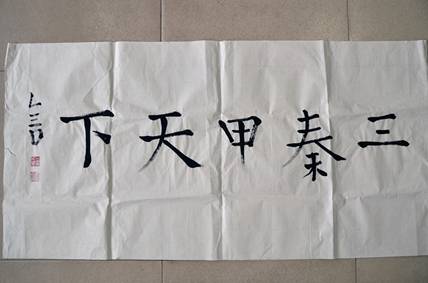 三秦甲天下